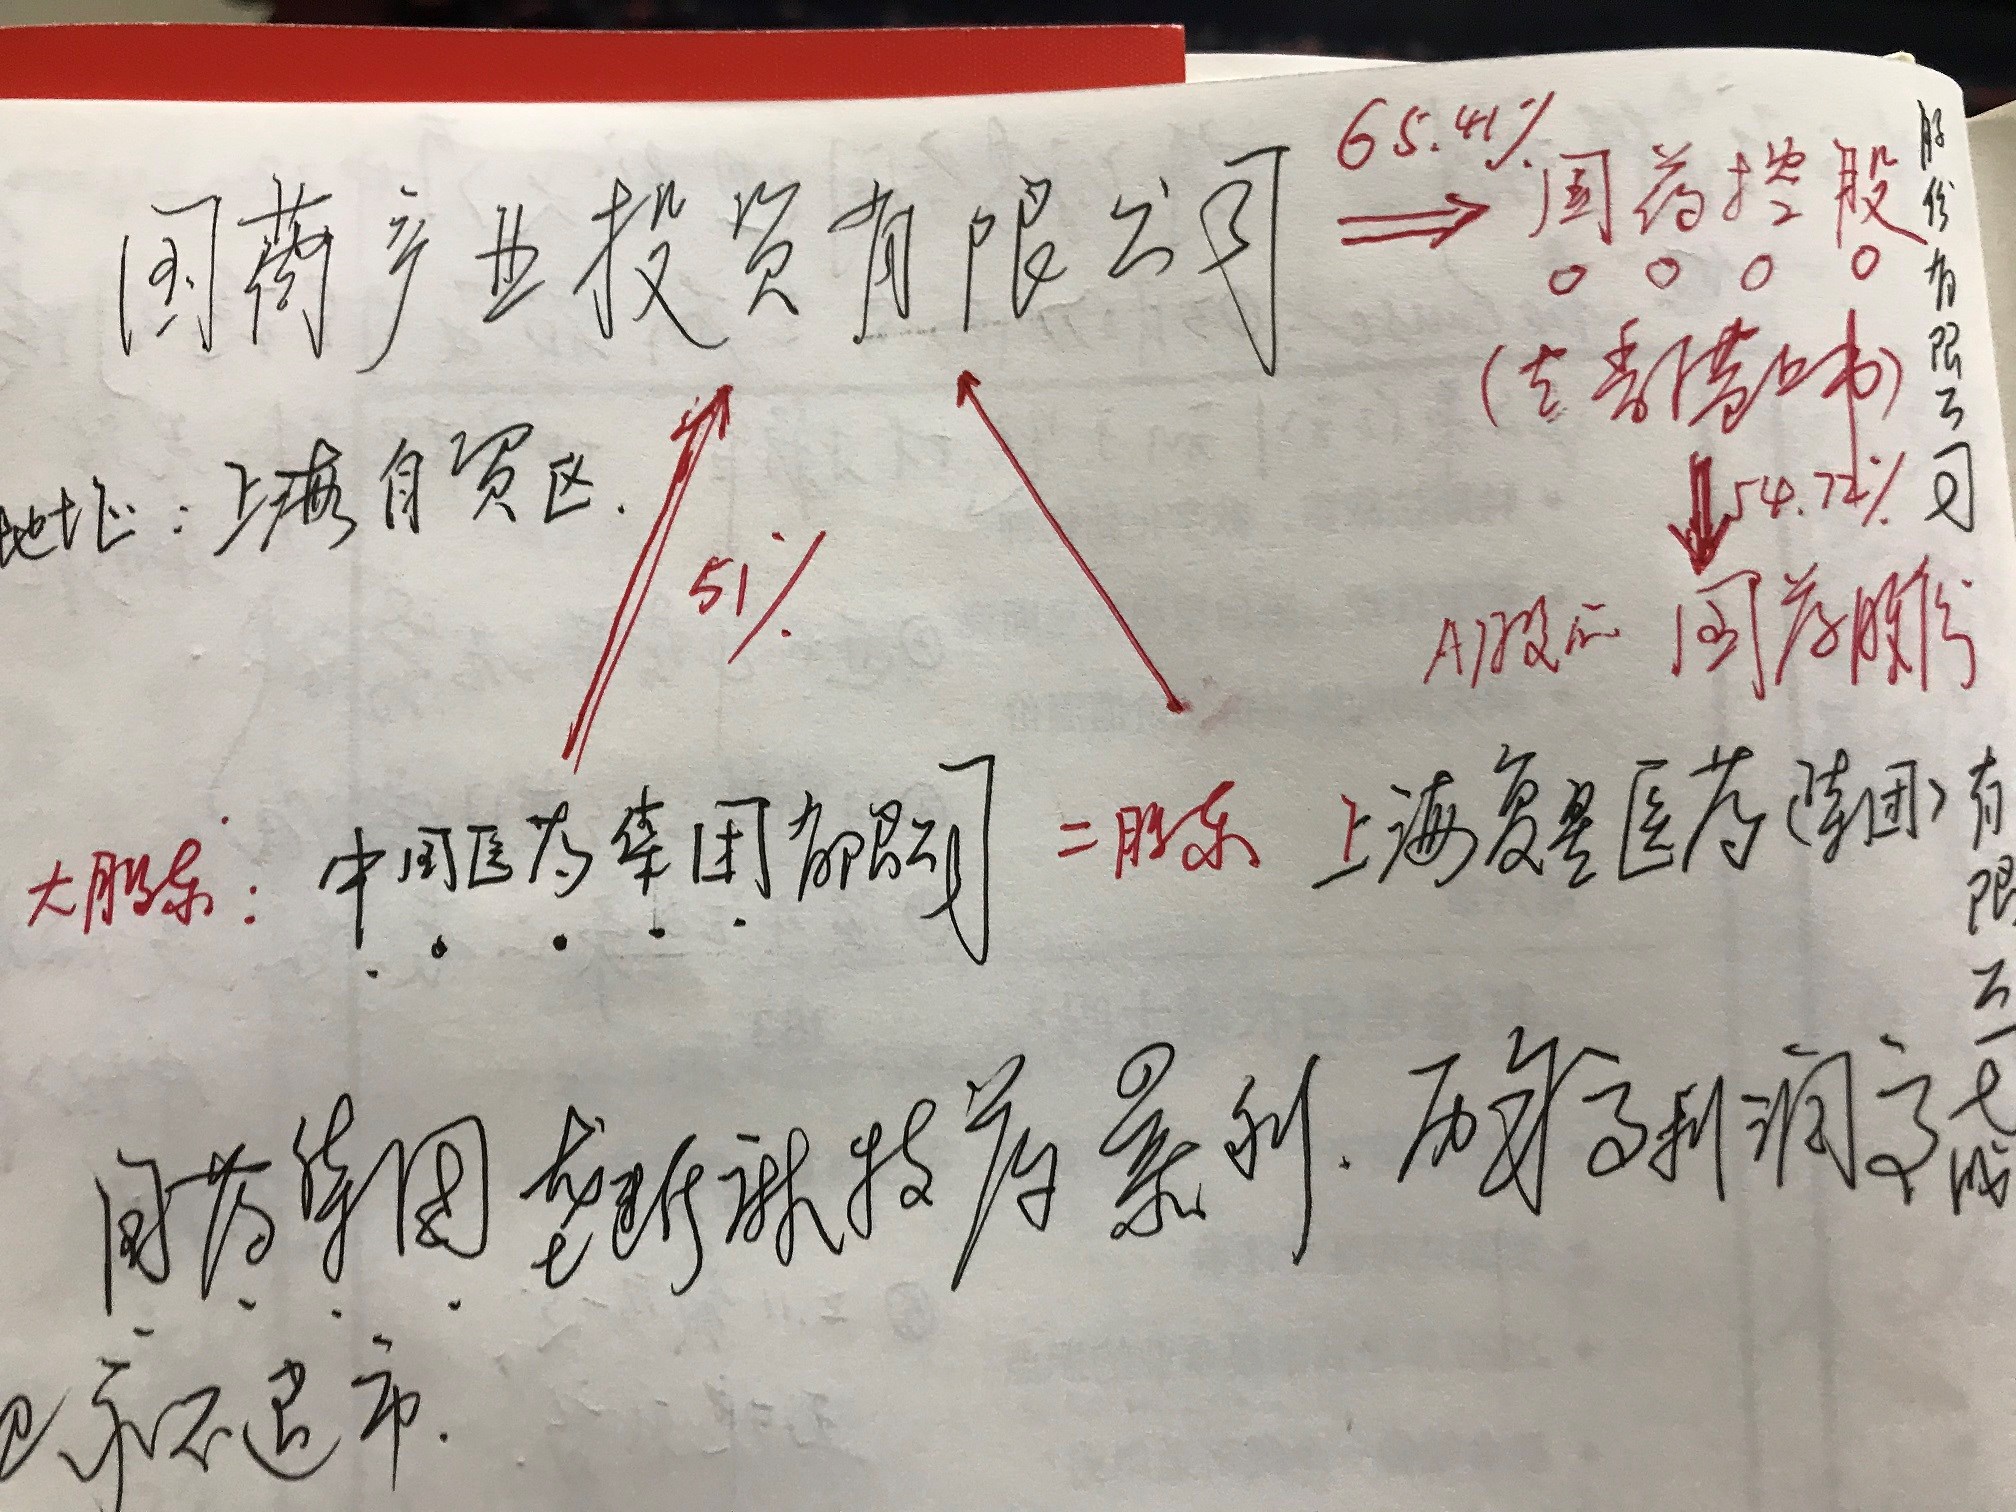 国药产业投资有限公司
65.41%
国药控股
股份有限公司
(在香港上市)
54.72%
A股的 国药股份
地址:上海自贸区.
51%
大股东: 中国医药集团有限公司
二股东 上海复星医药(集团)有限公司
国药集团 垄断 技 暴利. 高利润
永不退市.